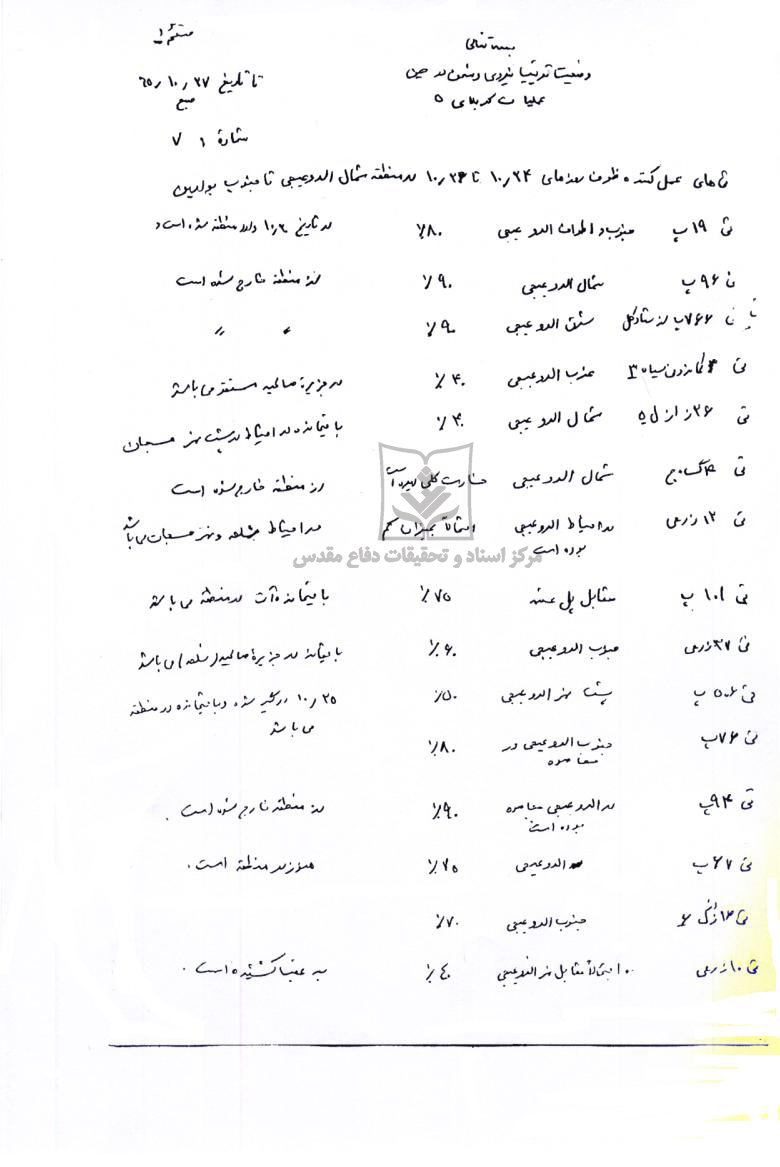 بسمه تعالی
وضعیت ترتیب نیروی دشمن در حین
عملیات کربلای ۵
تا تاریخ ۶۵/۱۰/۲۷
صبح
شمارهٔ ۱ ۷
تی های عمل کننده ظرف روزهای ۱۰/۲۴ تا ۱۰/۲۶ در منطقه شمال الدوعیجی تا جنوب بوارین
تی ۱۹ پ جنوب و اطراف الدوعیجی ۸۰٪ در تاریخ وارد منطقه شده است
تی ۹۶ پ شمال الدوعیجی ۹۰٪ از منطقه خارج شده است
تی ۷۶۶ پ از ستاد کل شرق الدوعیجی ۹۰٪ 〃 〃
تی کماندویی سپاه ۳ غرب الدوعیجی ۴۰٪ در جزیرهٔ صالحیه مستقر می باشد
تی ۲۶ ز از ل ۵ شمال الدوعیجی ۳۰٪ باقیمانده در احتیاط در پشت نهر
تی ۴ گ شمال الدوعیجی خسارت کلی دیده است از منطقه خارج شده است
تی ۱۲ زرهی در احتیاط الدوعیجی احتمالاً بمیزان کم در احتیاط و نهر می باشد
بوده است
مرکز اسناد و تحقیقات دفاع مقدس
تی ۱۰۱ پ مقابل پل ۷۵٪ باقیمانده آن در منطقه می باشد
تی ۳۷ زرهی جنوب الدوعیجی ۶۰٪ باقیمانده در جزیرهٔ صالحیه می باشد
تی ۵۰۶ پ پشت نهر الدوعیجی ۵۰٪ ۱۰/۲۵ درگیر شده و باقیمانده در منطقه
می باشد
تی ۷۶ پ جنوب الدوعیجی در ۸۰٪
محاصره
تی ۹۴ پ در الدوعیجی محاصره ۹۰٪ از منطقه خارج شده است.
بوده است
تی ۶۷ پ الدوعیجی ۷۵٪ هنوز در منطقه است.
تی ۲ جنوب الدوعیجی ۷۰٪
تی ۱۰ زرهی احتمالاً مقابل نهر الدوعیجی ۴۰٪ به عقب کشیده است.